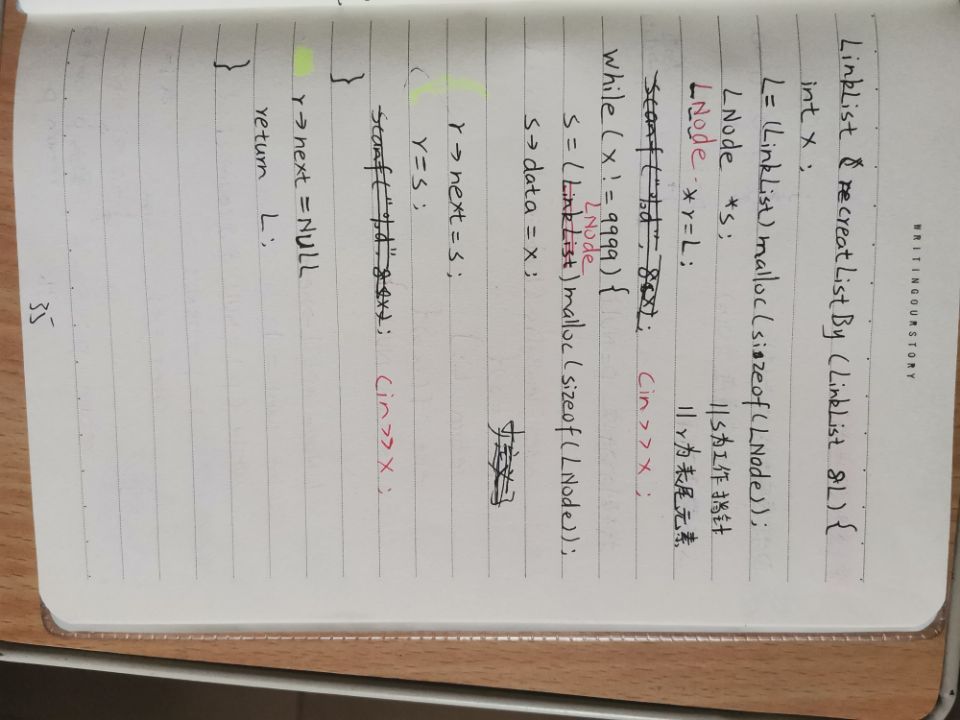 WRITINGOURSTORY
LinkList & recreatListBy (LinkList &L) {
int x ;
L=(LinkList)malloc(sizeof(LNode));
LNode *s; //s为工作指针
LNode *r=L; //r为表尾元素
scanf("%d",&x); cin>>x ;
while (x!=9999) {
s=(LinkList)malloc(sizeof(LNode));
LNode
s→data = x ;
r→next=s ;
r=s ;
scanf("%d",&x); cin>>x ;
}
r→next=NULL
return L ;
}
35